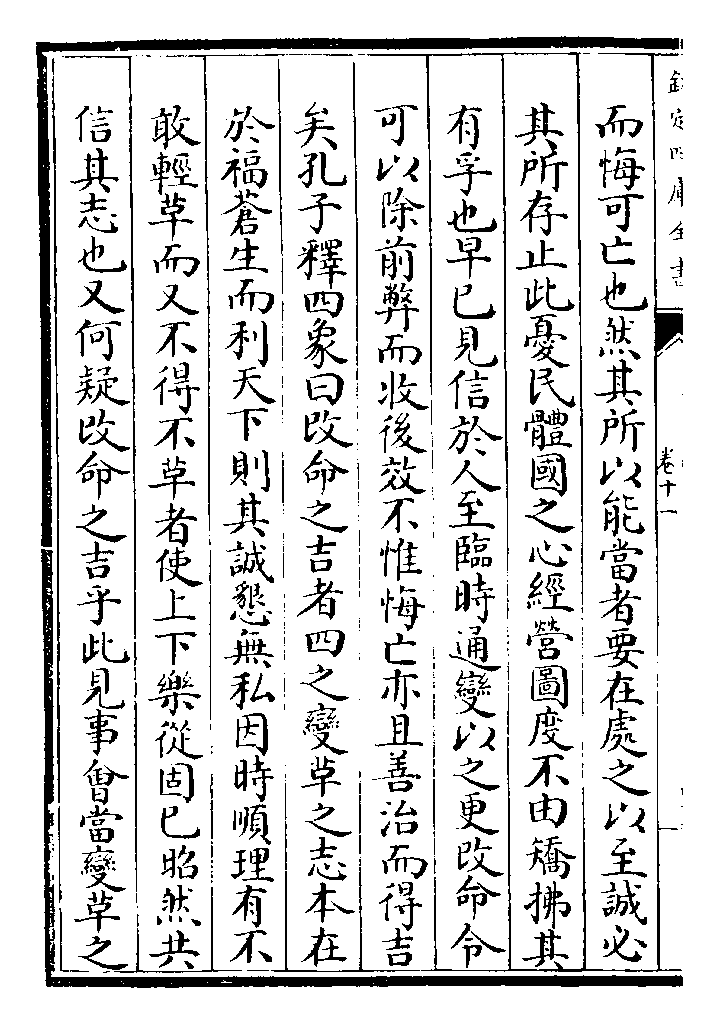 欽定四庫全書
卷十一
而悔可亡也然其所以能當者要在處之以至誠必
其所存止此憂民體國之心經營圖度不由矯拂其
有孚也早已見信於人至臨時通變以之更改命令
可以除前弊而收後效不惟悔亡亦且善治而得吉
矣孔子釋四象曰改命之吉者四之變革之志本在
於福蒼生而利天下則其誠懇無私因時順理有不
敢輕革而又不得不革者使上下樂從固已昭然共
信其志也又何疑改命之吉乎此見事會當變革之